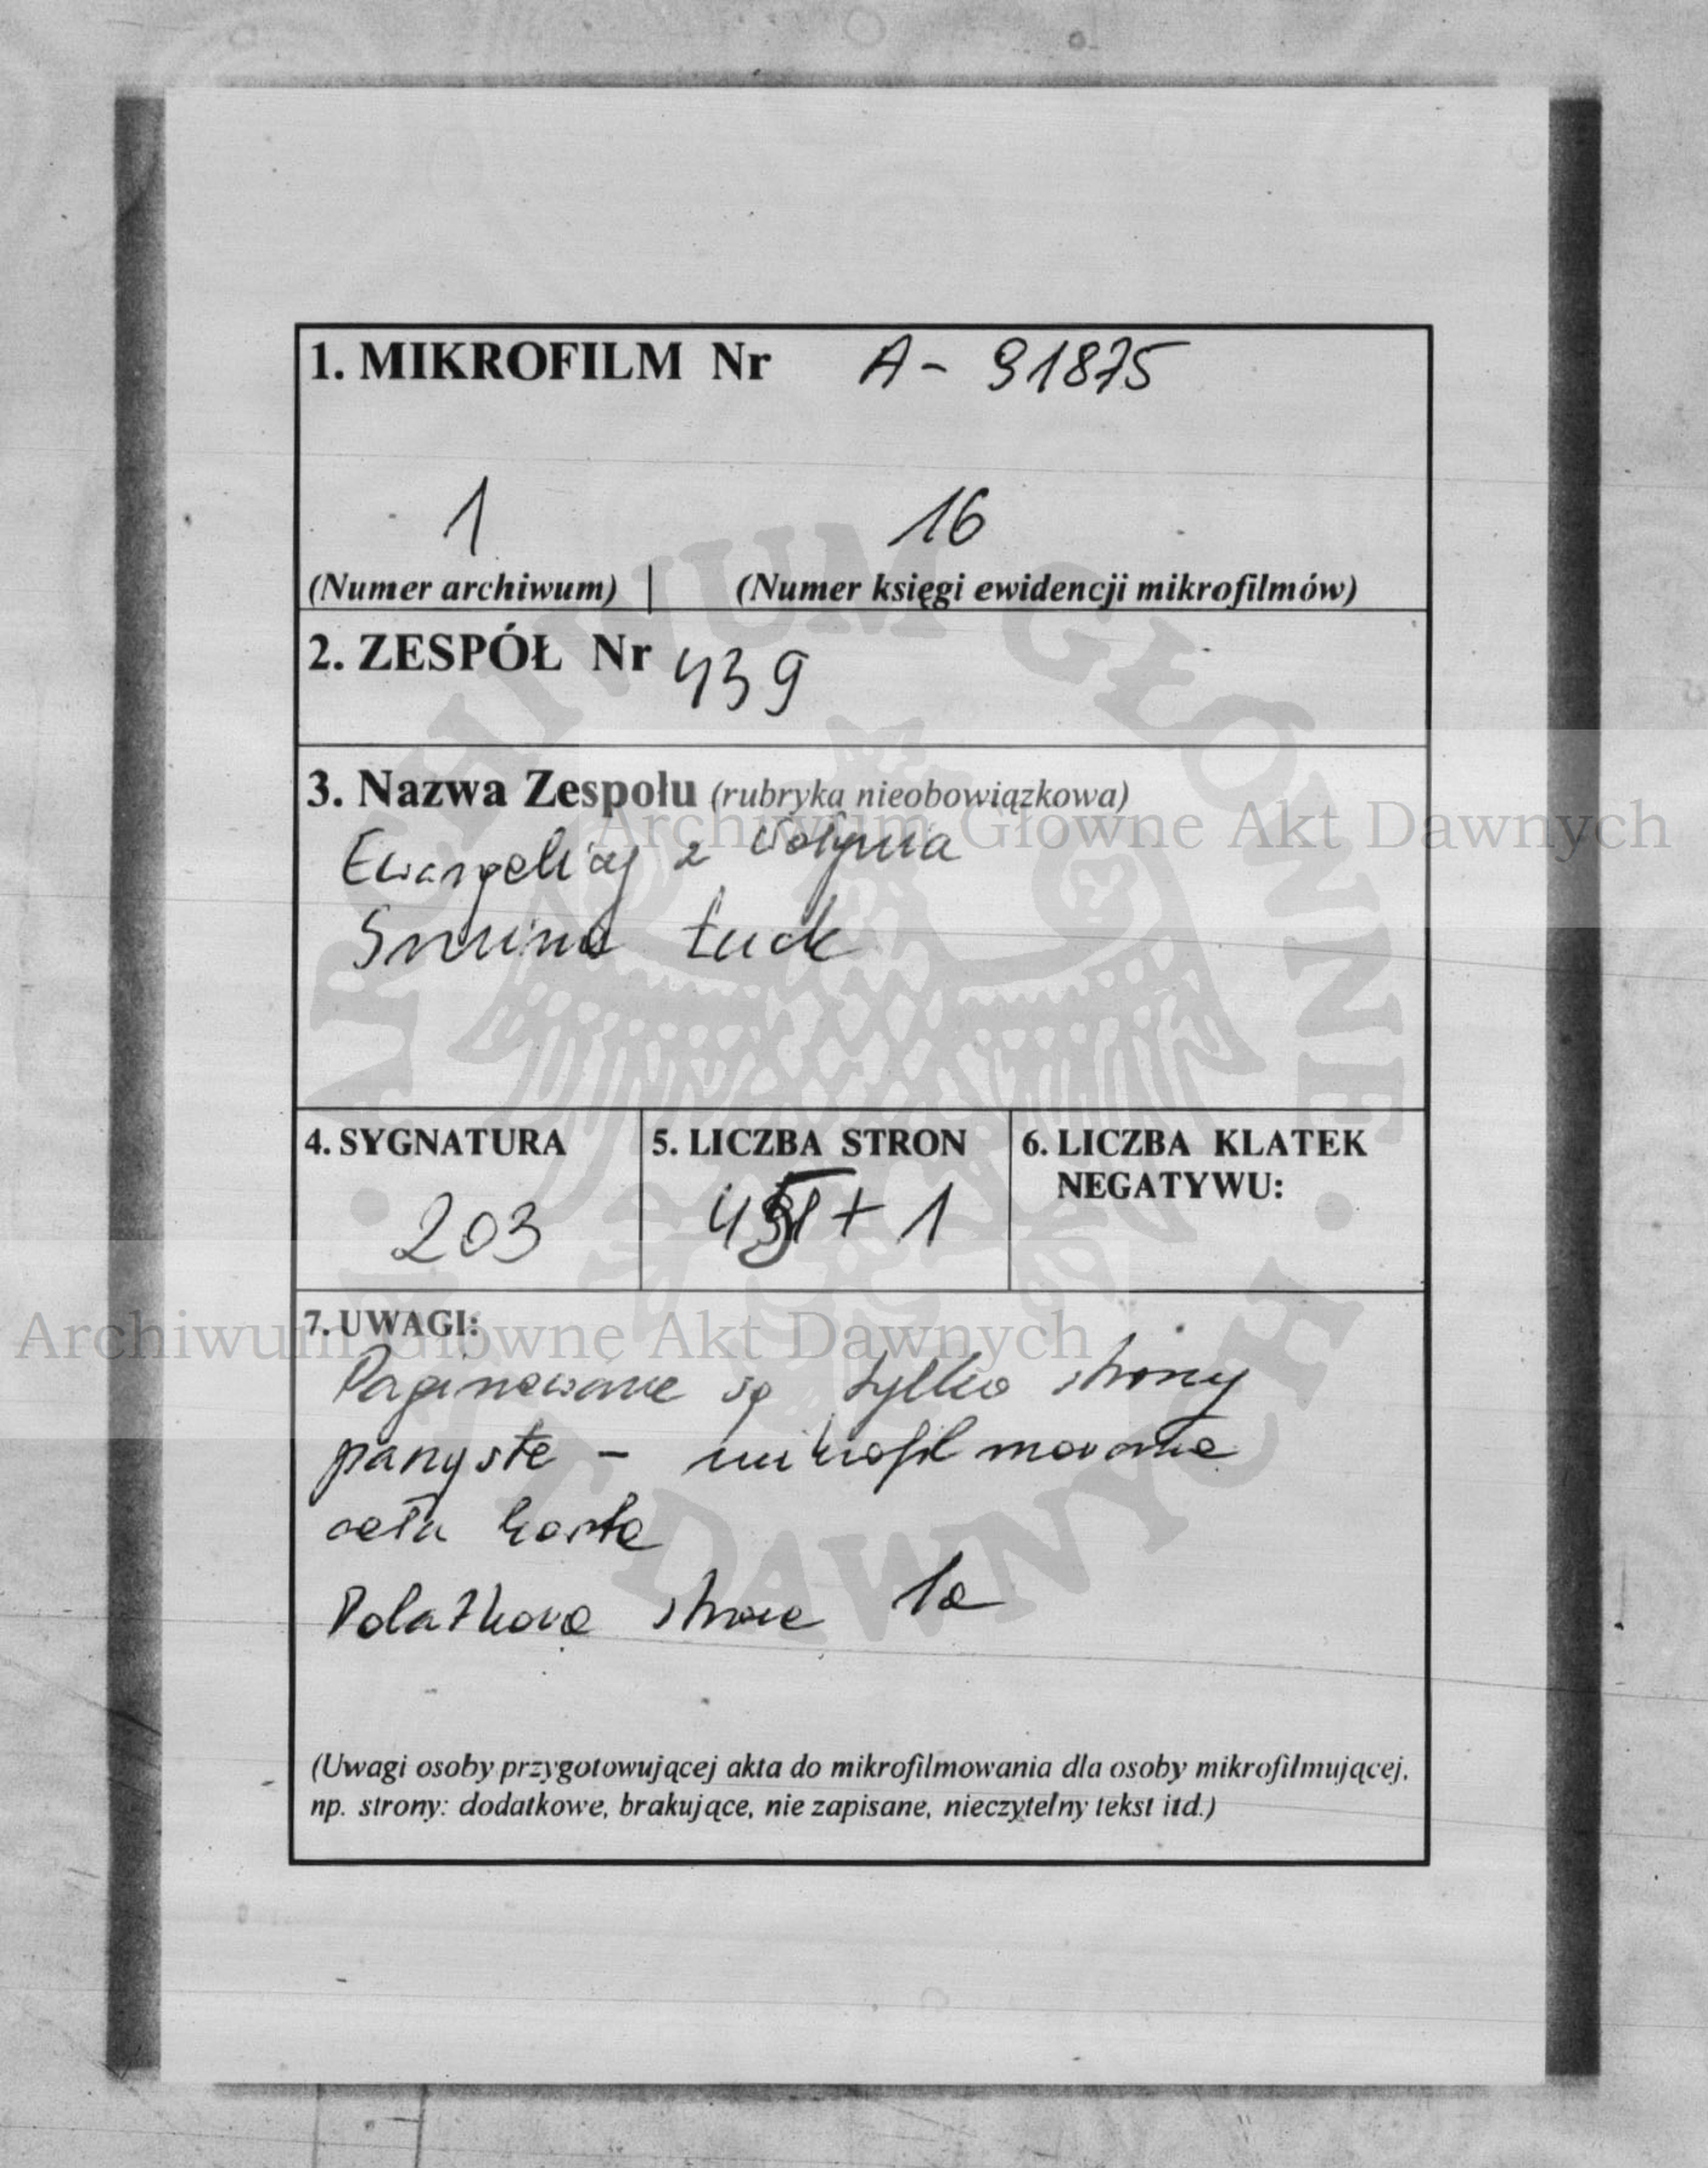 1. MIKROFILM Nr A - 91875
1 16
(Numer archiwum) | (Numer księgi ewidencji mikrofilmów)
2. ZESPÓŁ Nr 439
3. Nazwa Zespołu (rubryka nieobowiązkowa)
Archiwum Głowne Akt Dawnych
Ewangelicy z Wołynia
Gmina Łuck
4. SYGNATURA
203
5. LICZBA STRON
+ 1
6. LICZBA KLATEK
NEGATYWU:
7. UWAGI:
Archiwum Głowne Akt Dawnych
Paginowane są tylko strony
parzyste - mikrofilmowana
cała karta
Dodatkowa strona 1a
(Uwagi osoby przygotowującej akta do mikrofilmowania dla osoby mikrofilmującej,
np. strony: dodatkowe, brakujące, nie zapisane, nieczytelny tekst itd.)
ARCHIWUM GŁÓWNE
AKT DAWNYCH